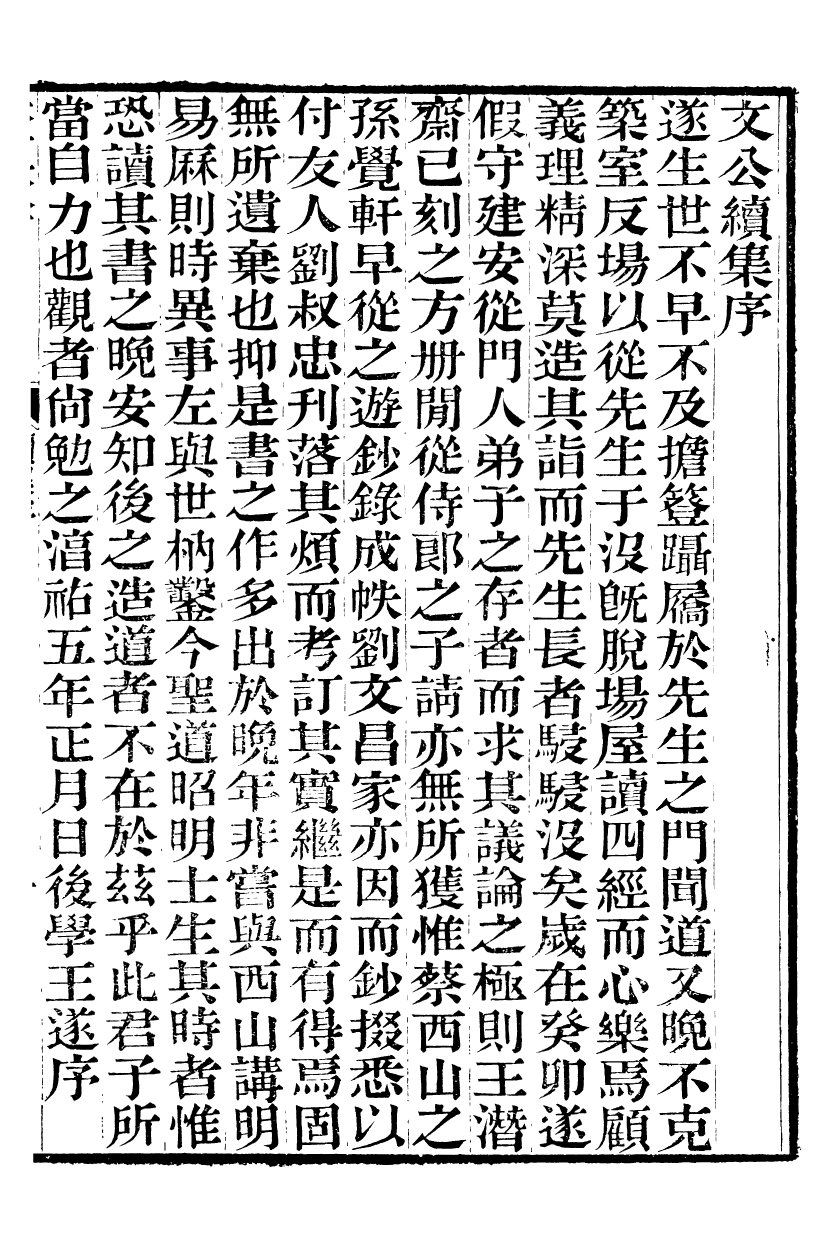 文公續集序
遂生世不早不及擔簦躡屩於先生之門聞道又晚不克
築室反場以從先生于沒旣脫場屋讀四經而心樂焉顧
義理精深莫造其詣而先生長者駸駸沒矣歲在癸卯遂
假守建安從門人弟子之存者而求其議論之極則王潛
齋已刻之方册閒從侍郎之子請亦無所獲惟蔡西山之
孫覺軒早從之遊鈔錄成帙劉文昌家亦因而鈔掇悉以
付友人劉叔忠刊落其煩而考訂其實繼是而有得焉固
無所遺棄也抑是書之作多出於晚年非嘗與西山講明
易厤則時異事左與世枘鑿今聖道昭明士生其時者惟
恐讀其書之晚安知後之造道者不在於茲乎此君子所
當自力也觀者尙勉之湻祐五年正月日後學王遂序